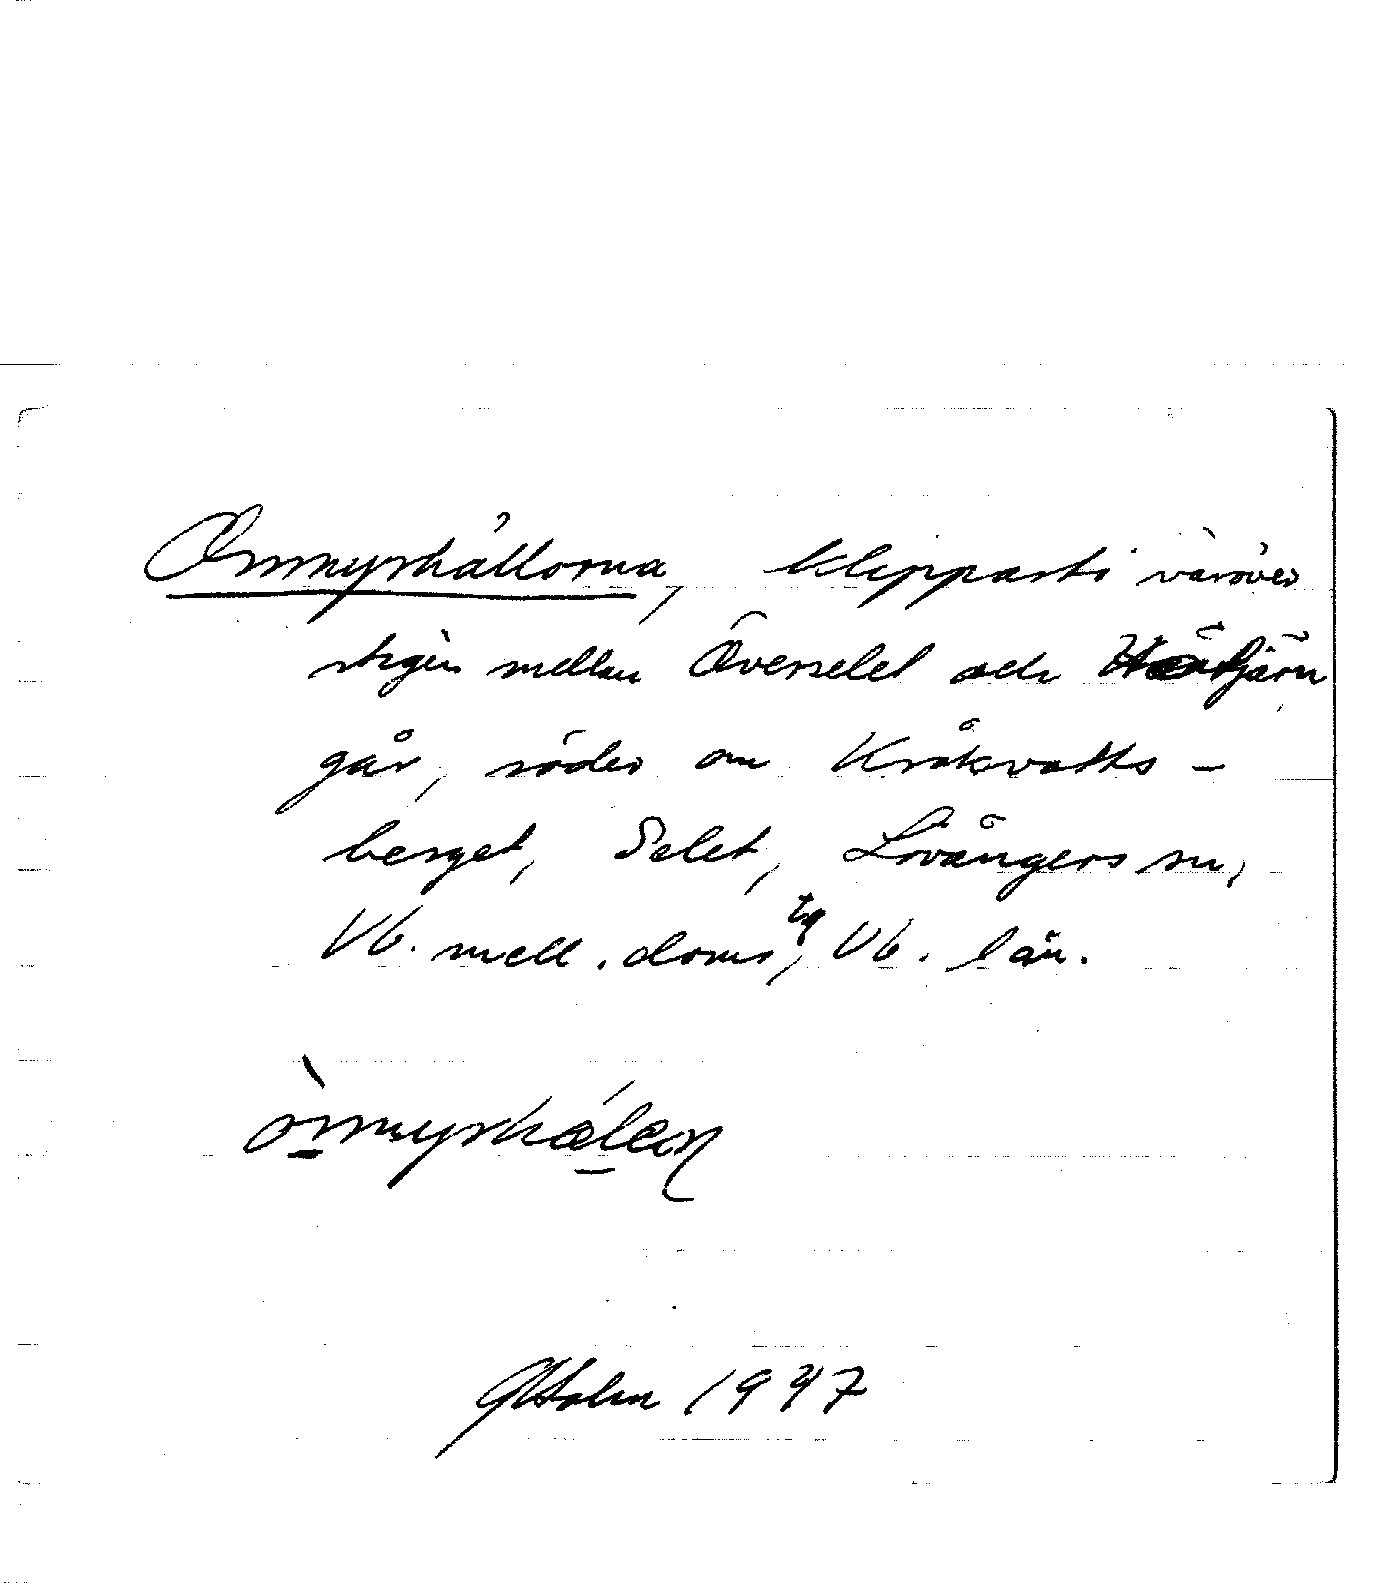 Önmyrhällorna, klipparti varöver
stigen mellan Överselet och
går, söder om Kråkvatts-
berget, Selet, Lövångers sn,
Vb. mell. doms tg, Vb. län.
GHolm 1947